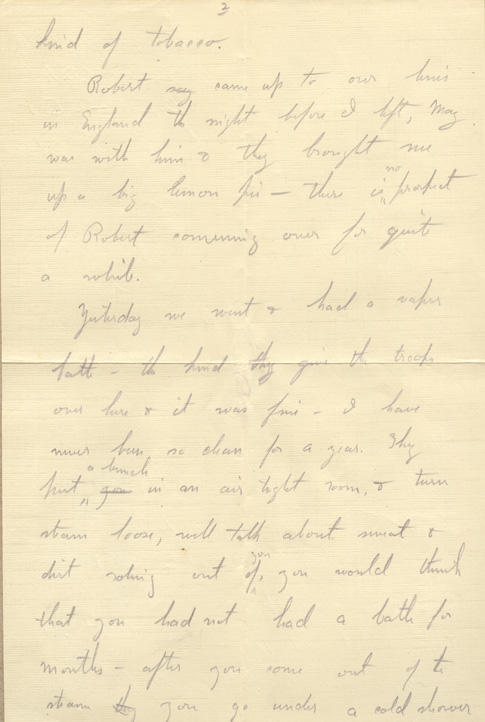 2
kind of tobacco.
Robert Ray came up to our lines
in England the night before I left, May
was with him & they brought me
up a big lemon pie — there is no prospect
of Robert comming over for quite
a while.
Yesterday we went & had a vaper
bath — the kind they give the troops
over here & it was fine — I have
never been so clean for a year. They
put you a bunch in an air tight room, & turn
steam loose, well talk about sweat &
dirt rolling out of you, you would think
that you had not had a bath for
months — after you come out of the
steam they you go under a cold shower